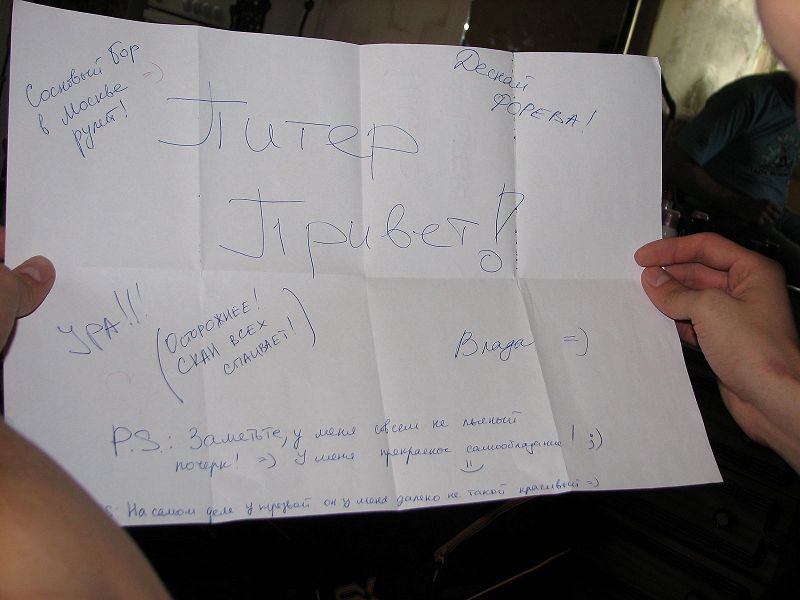 Сосновый Бор
в Москве =)
рулит!
Деснай
ФОРЕВА!
Питер
Привет!
УРА!!!
(ОСТОРОЖНЕЕ!
СКАИ ВСЕХ
СПАИВАЕТ!)
Влада =)
P.S.: Заметьте, у меня совсем не пьяный
почерк! =) У меня прекрасное самообладание! ;)
=)
S: На самом деле у трезвой он у меня далеко не такой красивый =)